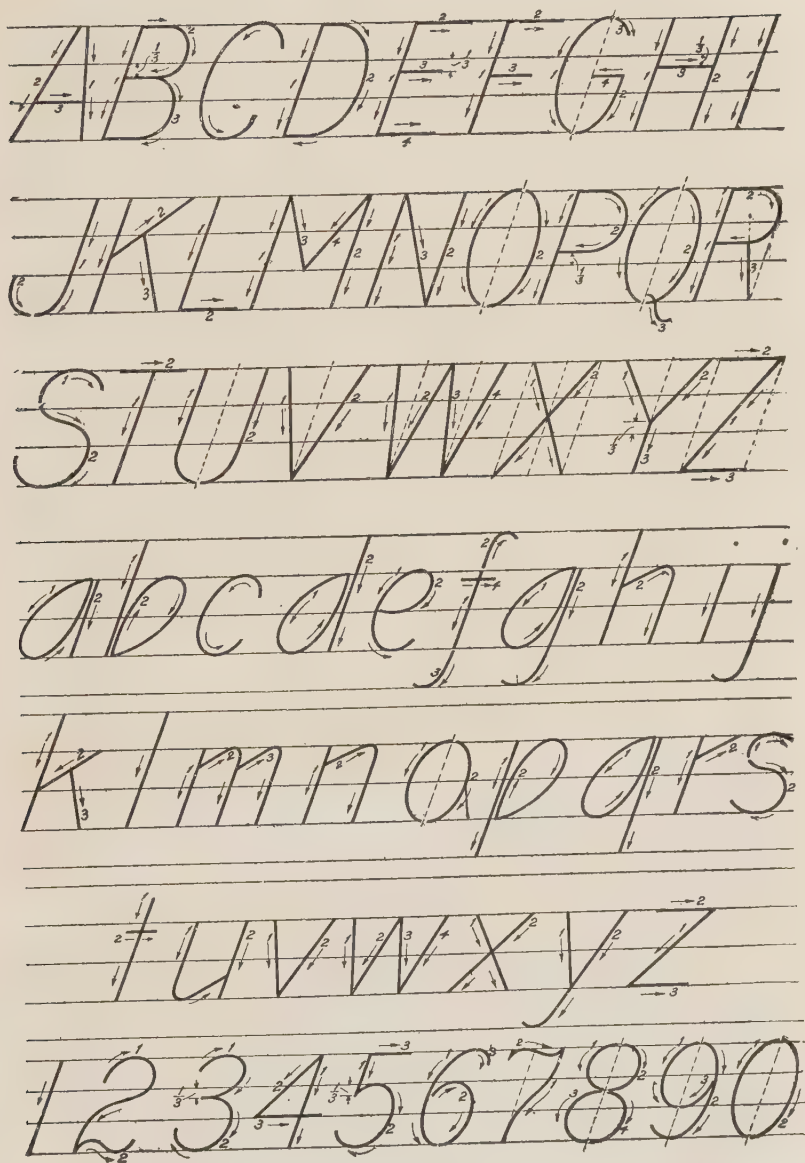 ABCDEFGHI
JKLMNOPQR
STUVWXYZ
abcdefghij
klmnopqrs
tuvwxyz
1234567890